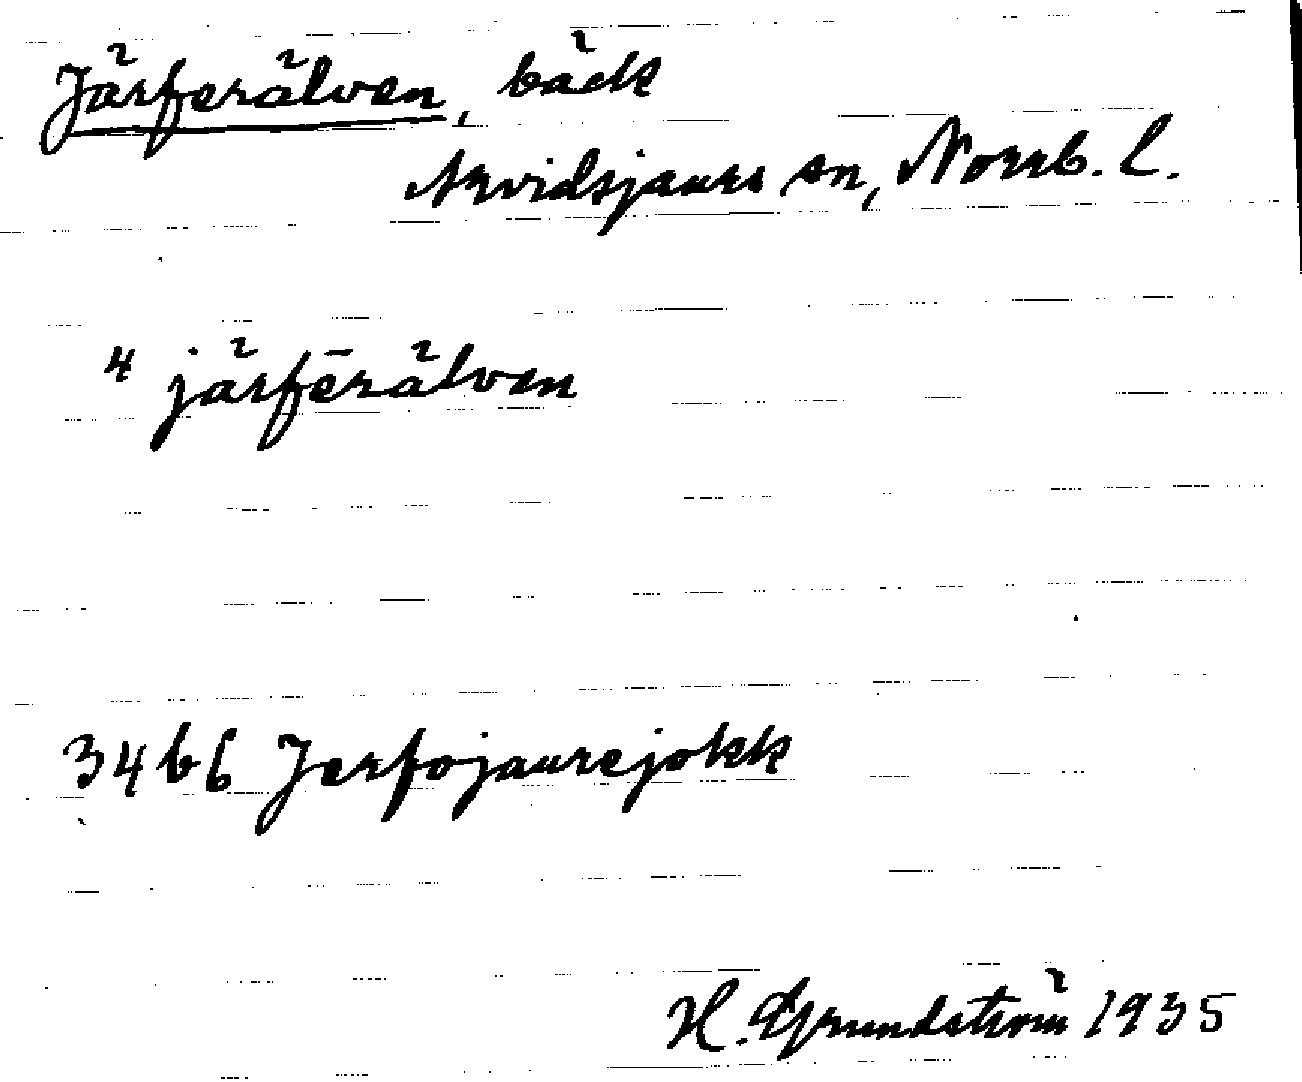 Järferälven, bäck
Arvidsjaurs sn, Norrb. l.
4 järfērälven
34 b 6 Jerfojaurejokk
H. Grundström 1935